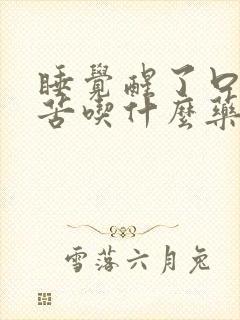 睡覺醒了口
苦喫什麼藥
雪落六月兔